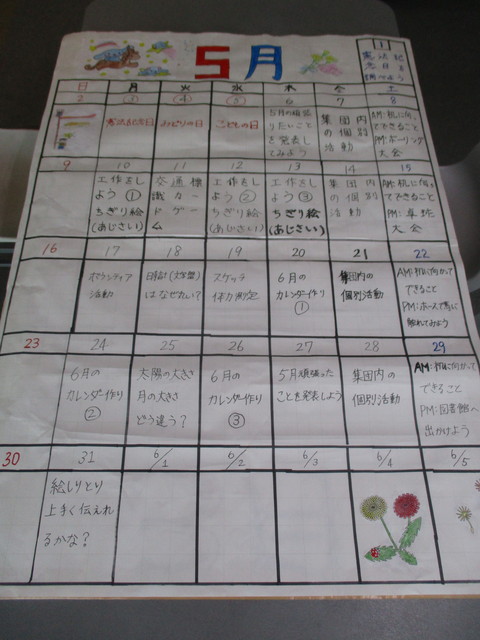 5月
1
憲法記
念日を
調べよう
日 月 火 水 木 金 土
2 3 4 5 6 7 8
憲法記念日
みどりの日
こどもの日
5月の頑張
りたいこと
を発表し
てみよう
集団内
の個別
活動
AM:机に向っ
てできること
PM:ボーリング
大会
9 10 11 12 13 14 15
工作をし
よう①
ちぎり絵
(あじさい)
交通標
識カー
ドゲー
ム
工作をし
よう②
ちぎり絵
(あじさい)
工作をし
よう③
ちぎり絵
(あじさい)
集団内
の個別
活動
AM:机に向っ
てできること
PM:卓球
大会
16 17 18 19 20 21 22
ボランティア
活動
日時計(文字盤)
はなぜ丸い?
スケッチ
体力測定
6月の
カレンダー作り
①
集団内の
個別活動
AM:机に向かって
できること
PM:ホースで馬に
触れてみよう
23 24 25 26 27 28 29
6月の
カレンダー作り
②
太陽の大きさ
月の大きさ
どう違う?
6月の
カレンダー作り
③
5月頑張った
ことを発表しよう
集団内の
個別活動
AM:机に向かって
できること
PM:図書館へ
出かけよう
30 31 6/1 6/2 6/3 6/4 6/5
絵しりとり
上手く伝えれ
るかな?